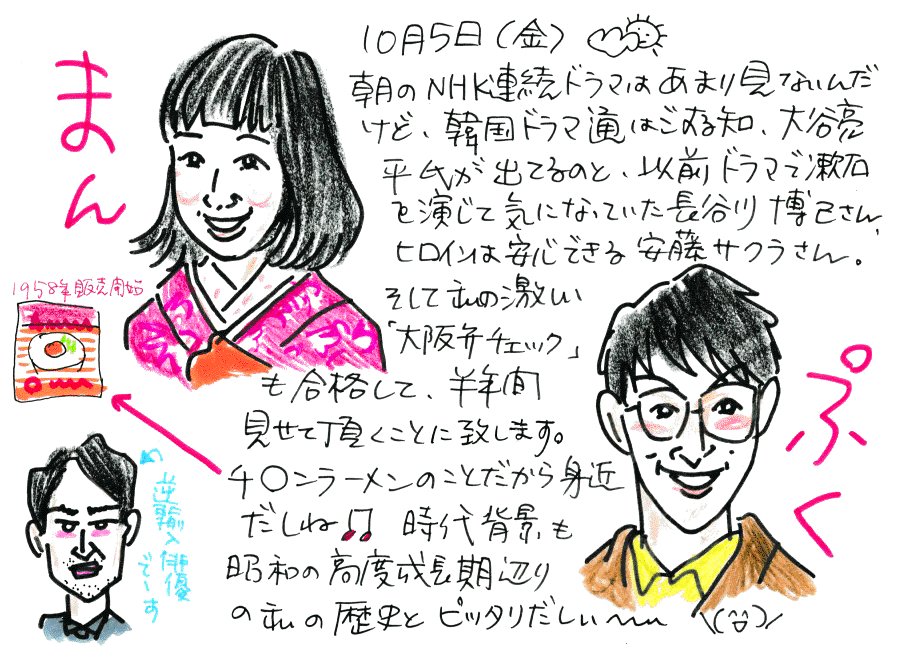 まんぷく
10月5日（金）
朝のNHK連続ドラマはあまり見ないんだ
けど、韓国ドラマ通はご存知、大谷亮
平氏が出てるのと、以前ドラマで漱石
を演じて気になっていた長谷川博己さん、
ヒロインは安心できる安藤サクラさん。
そして私の激しい
「大阪弁チェック」
も合格して、半年間
見せて頂くことに致します。
チ〇ンラーメンのことだから身近
だしね♫ 時代背景も
昭和の高度成長期辺り
の私の歴史とピッタリだしぃ〜〜 \(^^)/
1958年販売開始
逆輸入俳優
でーす